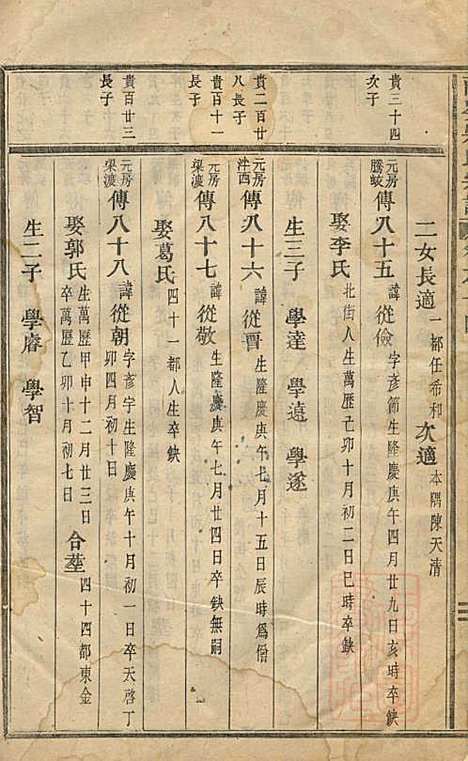 二女長適一都任希和次適本隅陳天清
貴三十四次子
元房騰蛟傳八十五諱從儉字彥節生隆慶庚午四月廿九日亥時卒缺
娶李氏北街人生萬歷己卯十月初二日巳時卒缺
生三子 學達 學遠 學遂
貴二百廿八長子
元房洋西傳八十六諱從晋生隆慶庚午七月十五日辰時為僧
貴百十一長子
元房梁渡傳八十七諱從敬生隆慶庚午七月廿四日卒缺無嗣
娶葛氏四十一都人生卒缺
貴百廿三長子
元房梁渡傳八十八諱從朝字彥宇生隆慶庚午十月初一日卒天啓丁卯四月初十日
娶郭氏生萬歷甲申十二月廿三日卒萬歷乙卯十月初七日合塟四十四都東金
生二子 學睿 學智